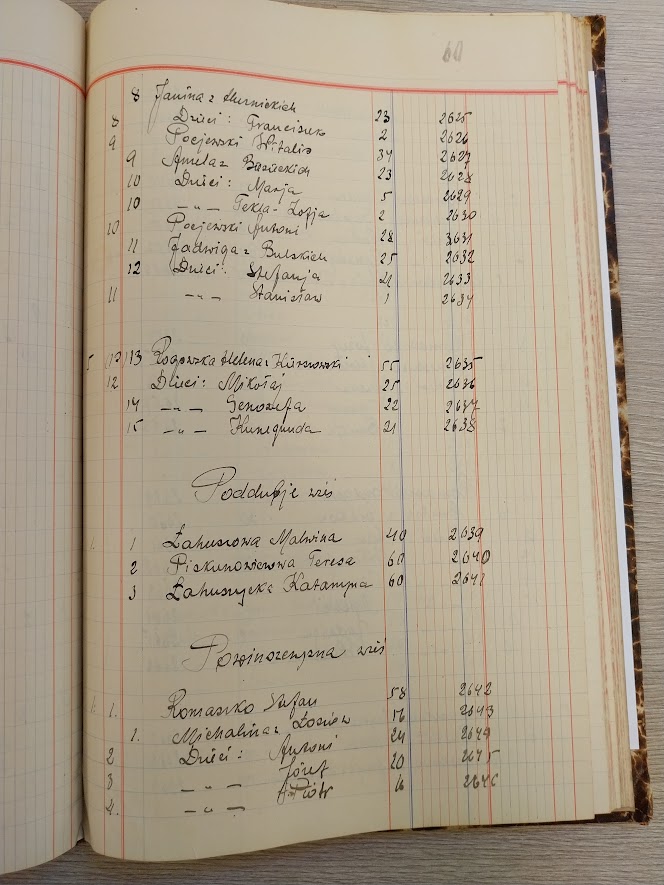 60
8 Janina z Hurnickich
8 Dzieci: Franciszek 23 2625
9 Pocjewski Witalis 2 2626
9 Amelia z 34 2627
10 Dzieci: Marja 23 2628
10 -„- Tekla-Zofja 5 2629
10 Pocjewski Antoni 2 2630
11 Jadwiga z Bulskich 28 2631
12 Dzieci: Stefanja 25 2632
11 -„- Stanisław 21 2633
1 2634
5 13 Rogowska Helena z 55 2635
12 Dzieci: Mikołaj 25 2636
14 -„- Genozefa 22 2637
15 -„- Kunegunda 21 2638
Poddubje wieś
1. 1 Łahuszowa Malwina 40 2639
2 Piskunowiczowa Teresa 60 2640
3 Katarzyna 60 2641
wieś
1. 1. Romaszko Stefan 58 2642
1. Michalina z 2643
2 Dzieci: Antoni 24 2644
3 -„- Józef 20 2645
4. -„- Piotr 16 2646